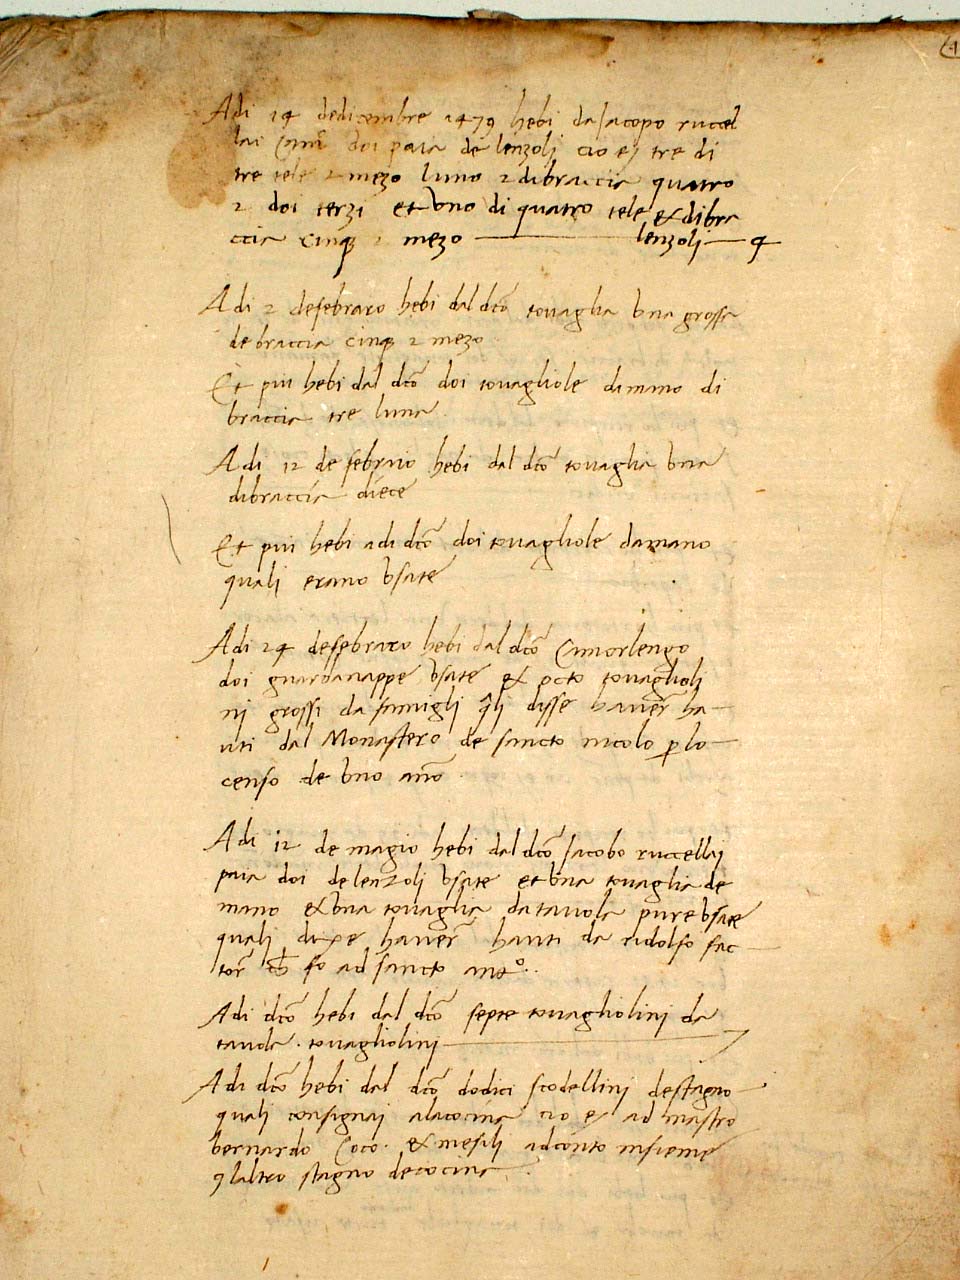 Adi 14 dedicembre 1479 hebi da Jacopo ruccel
lai Cam doi paia de lenzoli cio e tre di
tre tele 2 mezo luno 2 dibraccia quatro
2 doi terzi et uno di quatro tele & dibra
ccia cinq 2 mezo lenzoli 4
Adi 2 defebraro hebi dal dcō tovaglia una grossa
de braccia cinq 2 mezo
Et piu hebi dal dcō doi tovagliole dimano di
braccia tre luna
Adi 12 de febraio hebi dal dcō tovaglia una
dibraccia diece
Et piu hebi adi dcō doi tovagliole damano
quali erano usate
Adi 24 defebraro hebi dal dcō Camorlengo
doi guardanappe usate & octo tovaglioli
ni grossi da famigli qli disse haver ha
uti dal Monastero de sancto nicolo p lo
censo de uno anno
Adi 12 de magio hebi dal dcō Jacobo ruccellaj
paia doi de lenzoli usate et una tovaglia de
mano & una tovaglia da tavola pure usate
quali dixe haver hauti da ridolfo fac
tor ch fo ad sancto antº.
Adi dcō hebi dal dcō septe tovagliolini da
tavola . tovagliolini 7
Adi dcō hebi dal dcō dodici scodellini destagno
quali consignaj alacocina cio e ad mastro
bernardo Coco . & mesili adconto insieme
qlaltro stagno decocina .